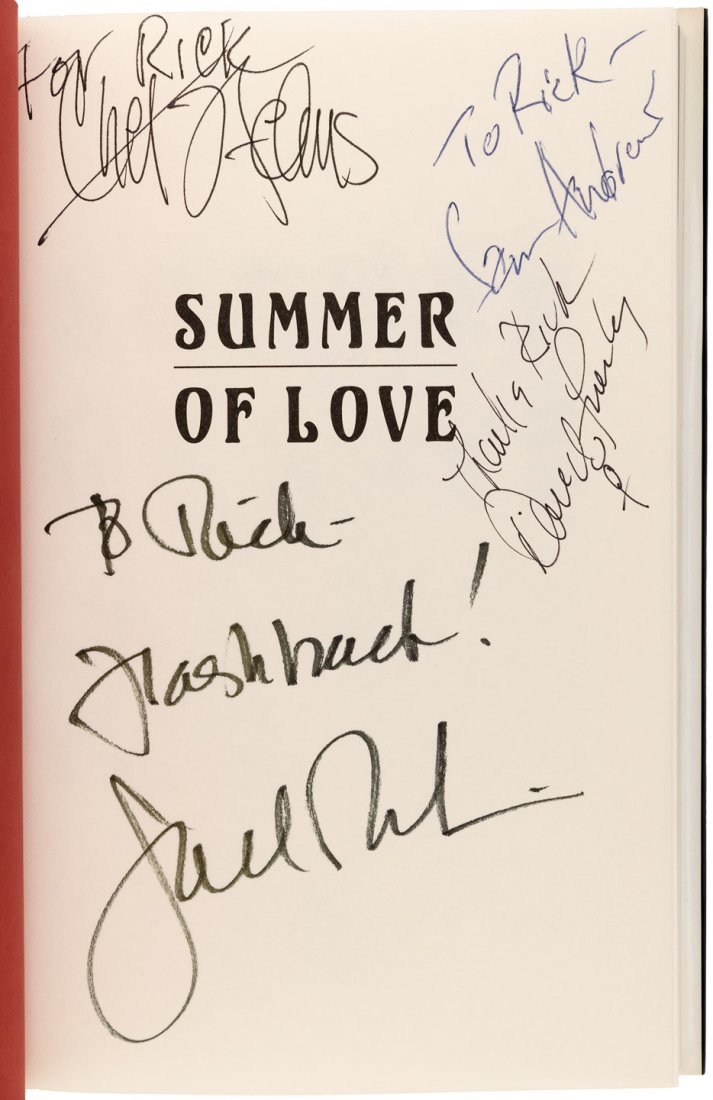 For Rick
Chet Helms
To Rick-
Sam Andrew
SUMMER
OF LOVE
Thanks Rick
David
To Rick-
Flashback!
Joel